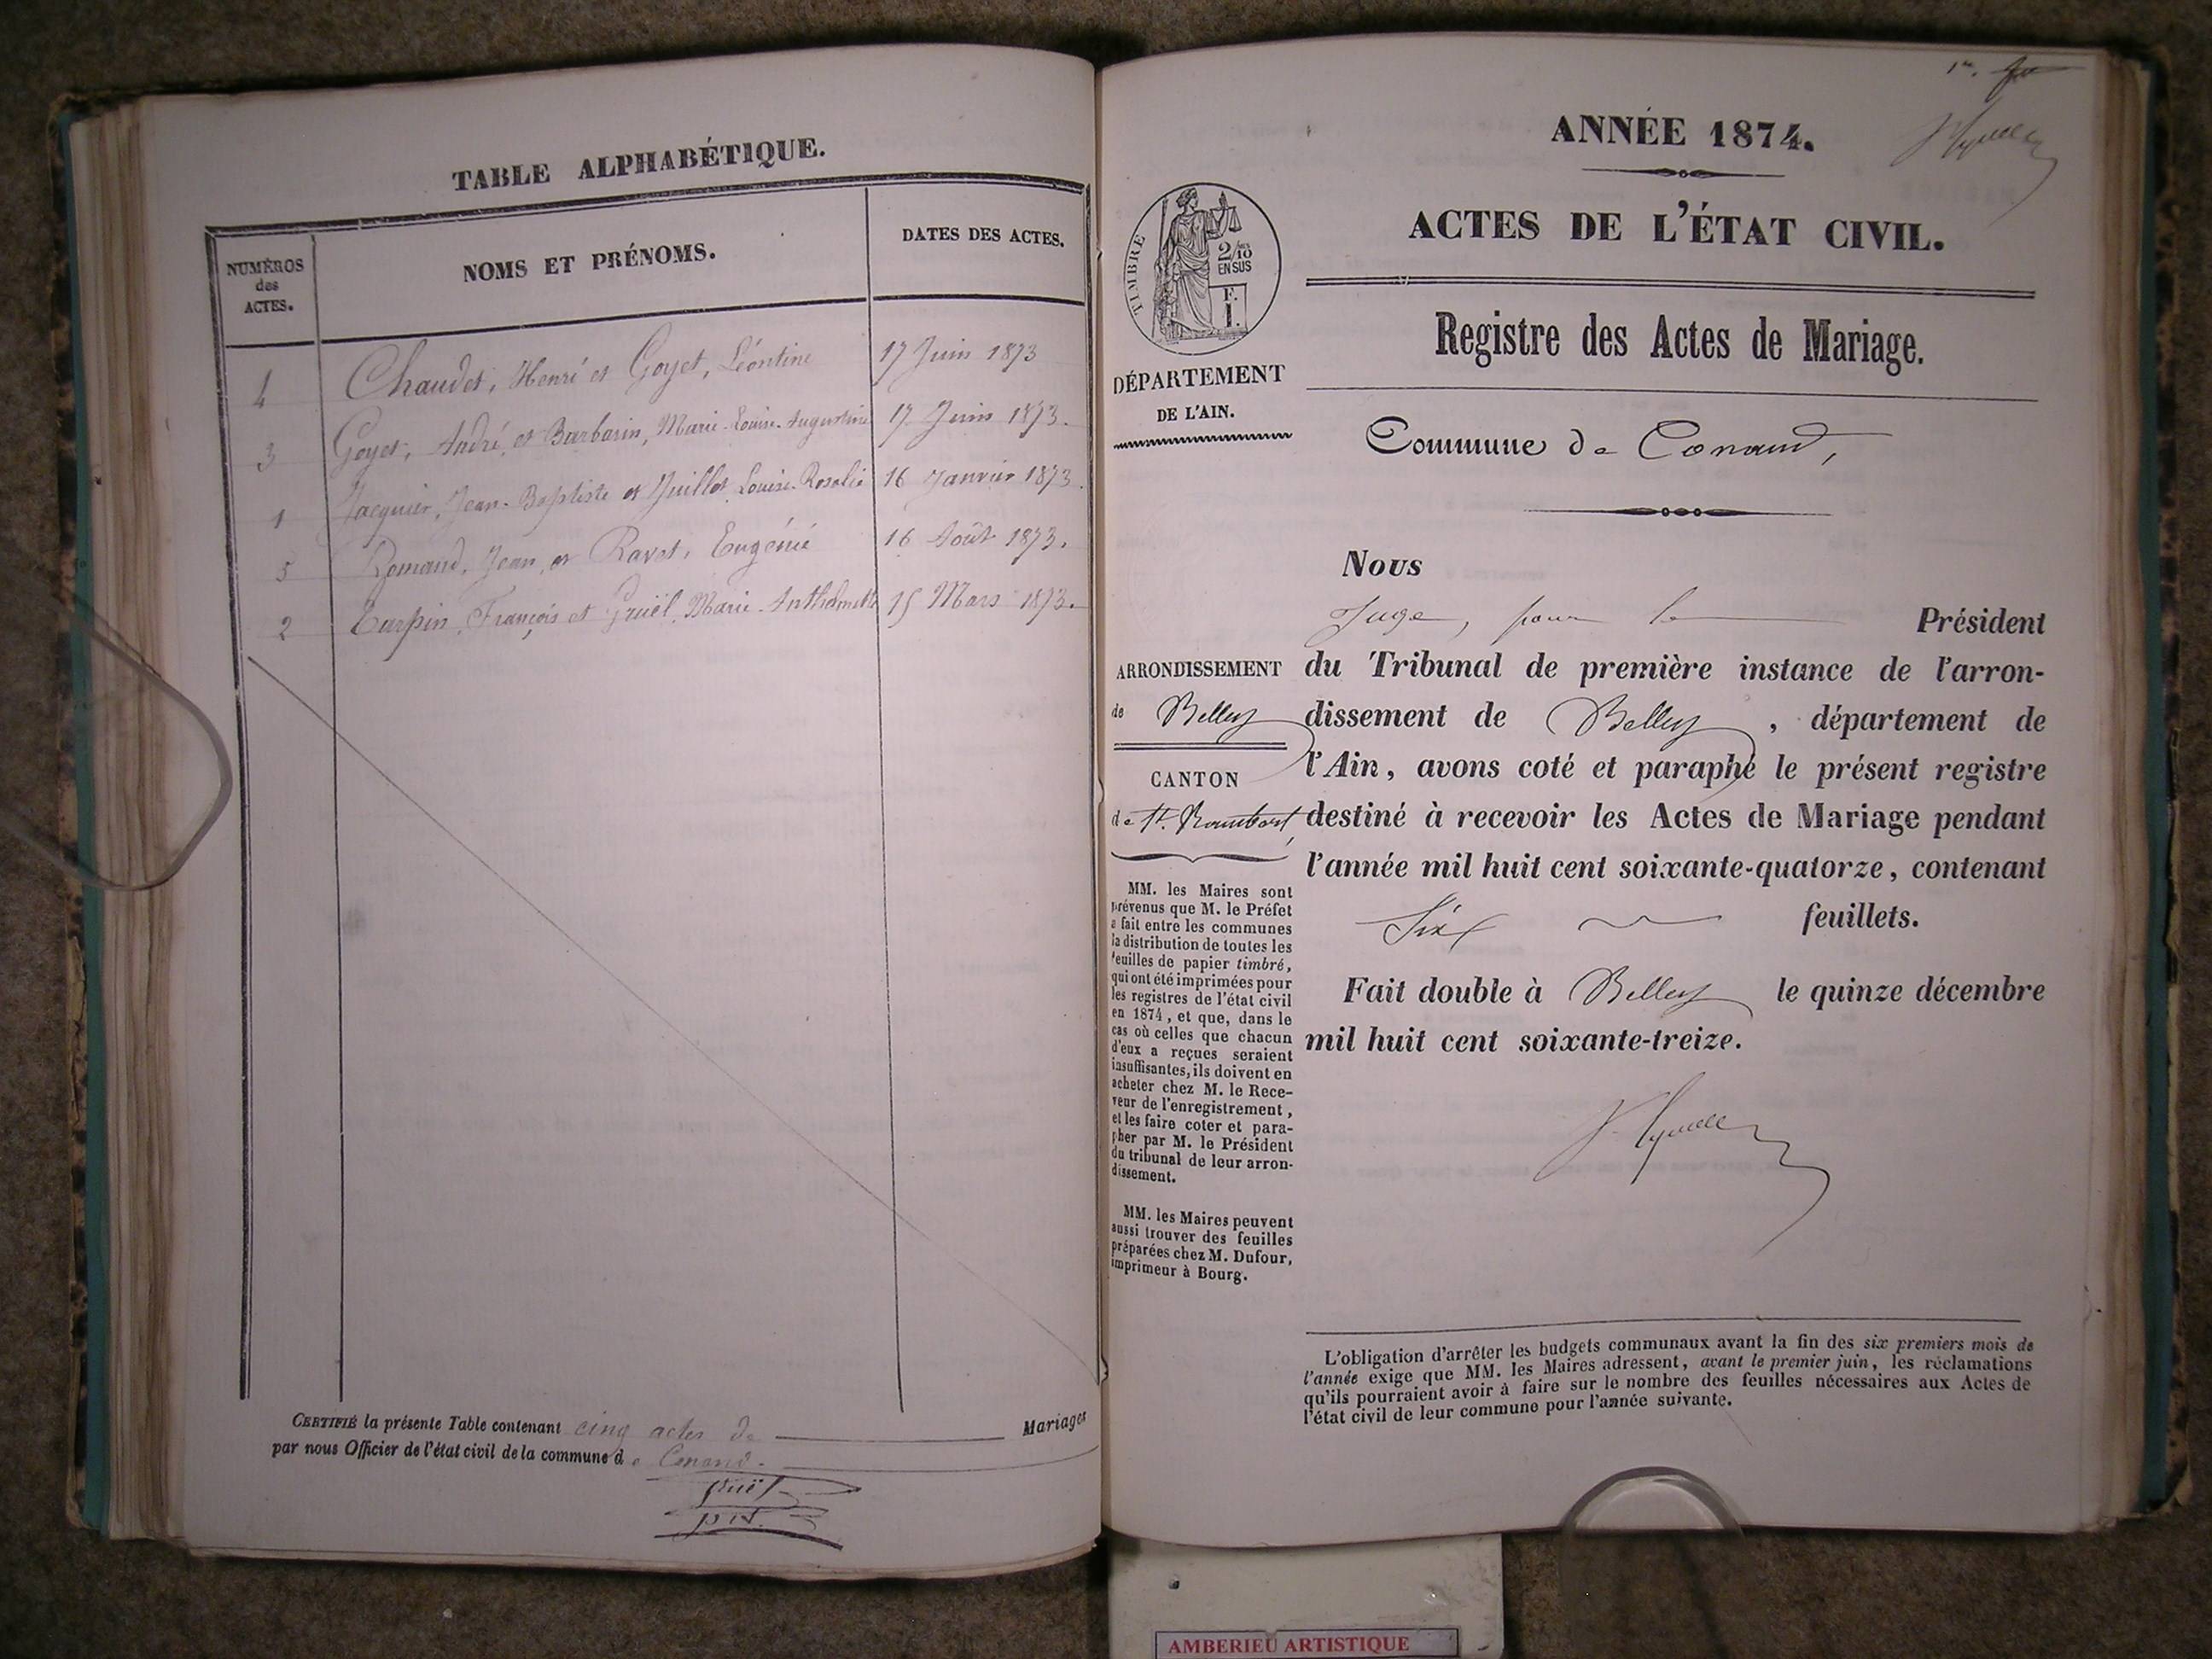 TABLE ALPHABÉTIQUE.
NUMÉROS des ACTES.
NOMS ET PRÉNOMS.
DATES DES ACTES.
4 Chaudet, Henri et Goyet, Léontine 17 Juin 1873
3 Goyet, André, et Barbarin, Marie-Louise-Augustine 17 Juin 1873.
1 Jacquier, Jean-Baptiste et Juillet, Louise-Rosalie 16 Janvier 1873.
5 Romand, Jean, et Ravet, Eugénie 16 Août 1873.
2 Tarpin, François et Gruël, Marie-Anthelmette 15 Mars 1873.
CERTIFIÉ la présente Table contenant cinq actes de Mariages
par nous Officier de l'état civil de la commune de Conand.
Gruël
1re. fet
ANNÉE 1874.
ACTES DE L'ÉTAT CIVIL.
TIMBRE
2/10 EN SUS
F.
1.
Registre des Actes de Mariage.
DÉPARTEMENT
DE L'AIN.
Commune de Conand,
ARRONDISSEMENT
de Belley
CANTON
de St. Rambert,
MM. les Maires sont
prévenus que M. le Préfet
a fait entre les communes
la distribution de toutes les
feuilles de papier timbré,
qui ont été imprimées pour
les registres de l'état civil
en 1874, et que, dans le
cas où celles que chacun
d'eux a reçues seraient
insuffisantes, ils doivent en
acheter chez M. le Rece-
veur de l'enregistrement,
et les faire coter et para-
pher par M. le Président
du tribunal de leur arron-
dissement.
MM. les Maires peuvent
aussi trouver des feuilles
préparées chez M. Dufour,
imprimeur à Bourg.
Nous
Juge, pour le Président
du Tribunal de première instance de l'arron-
dissement de Belley, département de
l'Ain, avons coté et paraphé le présent registre
destiné à recevoir les Actes de Mariage pendant
l'année mil huit cent soixante-quatorze, contenant
Six feuillets.
Fait double à Belley le quinze décembre
mil huit cent soixante-treize.
L'obligation d'arrêter les budgets communaux avant la fin des six premiers mois de
l'année exige que MM. les Maires adressent, avant le premier juin, les réclamations
qu'ils pourraient avoir à faire sur le nombre des feuilles nécessaires aux Actes de
l'état civil de leur commune pour l'année suivante.
AMBERIEU ARTISTIQUE